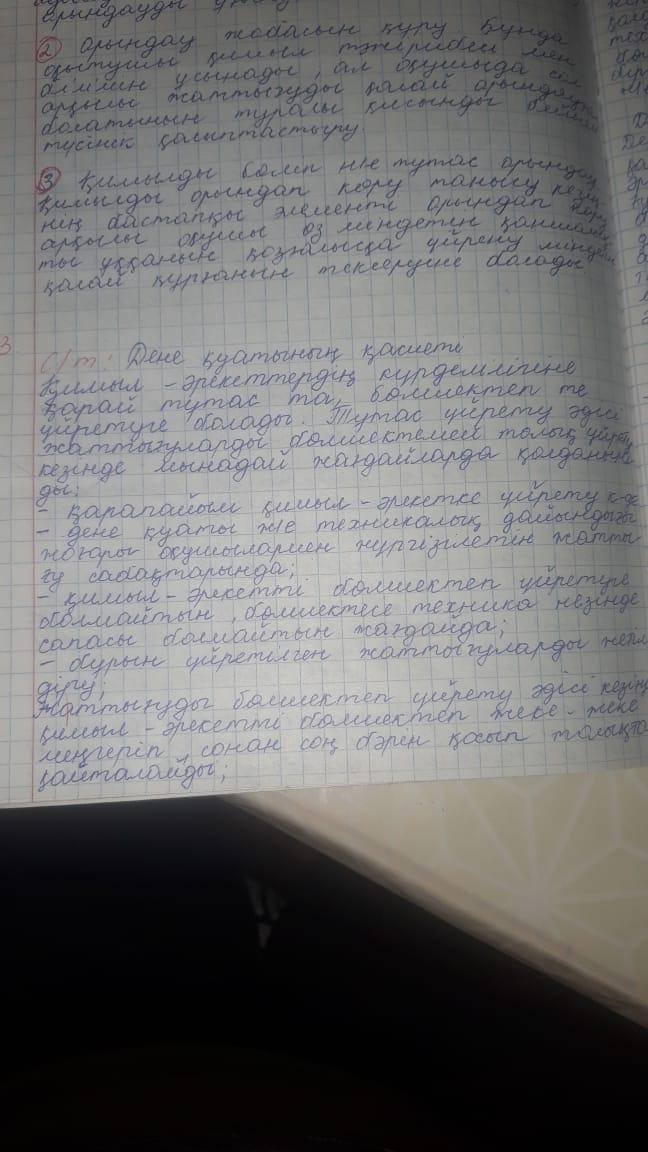 орындауды
2 Орындау жобасын құру Бұнда
оқытушы қимыл тәжірибесі мен
білімін ұсынады, ал оқушыда сол
арқылы жаттығуды қалай орындау
болатынын туралы қисынды бейнелі
түсінік қалыптастыру.
3 Қимылды бөліп н/е тұтас орындау
Қимылды орындап көру танысу кезің
нің бастапқы элементі орындап көру
арқылы оқушы өз міндетін қаншалық
ты ұққанын қозғалысқа үйрену міндетін
қалай құрғанын тексеруіне болады
3
С/т: Дене қуатының қасиеті
Қимыл-әрекеттердің күрделілігіне
қарай тұтас та, бөлшектеп те
үйретуге болады. Тұтас үйрету әдісі
жаттығуларды бөлшектемей толық үйрету
кезінде мынадай жағдайларда қолданыла
ды:
- қарапайым қимыл-әрекетке үйрету к-де
- дене қуаты ж/е техникалық дайындығы
жоғары оқушылармен жүргізілетін жатты
ғу сабақтарында;
- қимыл-әрекетті бөлшектеп үйретуге
болмайтын, бөлшектесе техника незінде
сапасы болмайтын жағдайда;
- бұрын үйретілген жаттығуларды жетіл
діру;
Жаттығуды бөлшектеп үйрету әдісі кезінде
қимыл-әрекетті бөлшектеп жеке-жеке
меңгеріп, сонан соң бәрін қосып толықтай
қайталайды;